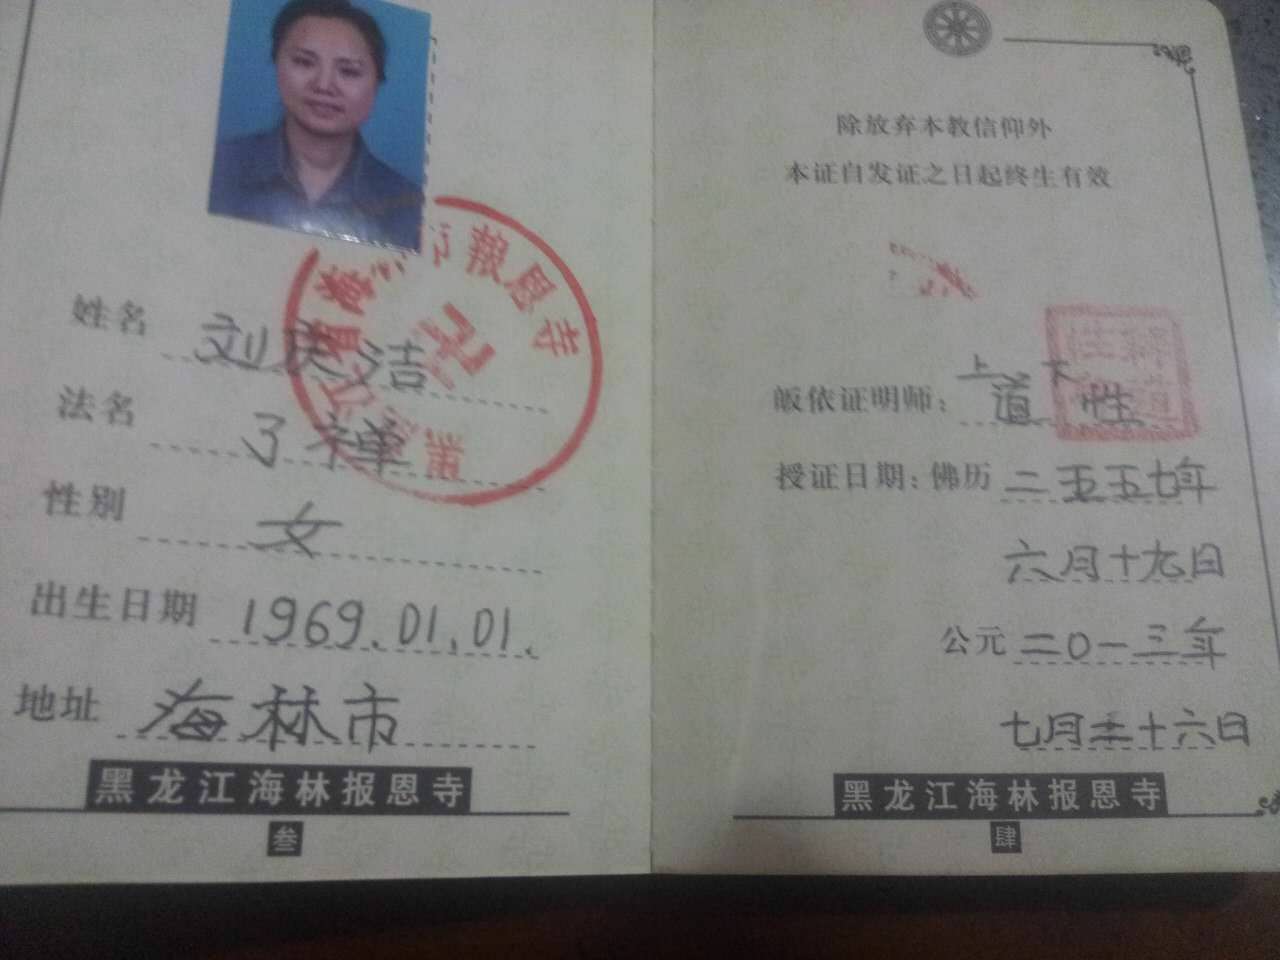 姓名 刘庆洁
法名 了禅
性别 女
出生日期 1969.01.01.
地址 海林市
黑龙江海林报恩寺
叁
报恩寺
除放弃本教信仰外
本证自发证之日起终生有效
皈依证明师：上道下性
授证日期：佛历 二五五七年
六月十九日
公元 二〇一三年
七月二十六日
黑龙江海林报恩寺
肆